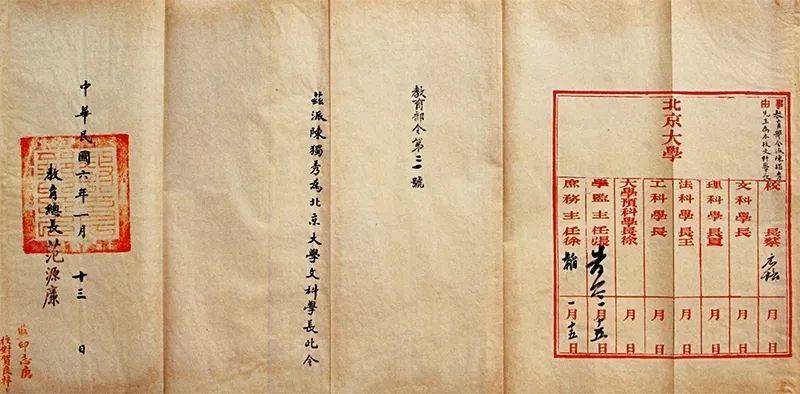 事由
教育部令派陳獨秀
先生為本校文科學長
北京大學
校長蔡
月 日
文科學長
月 日
理科學長夏
月 日
法科學長王
月 日
工科學長
月 日
大學預科學長徐
月 日
學監主任張
一月十五日
庶務主任徐
一月十五日
教育部令第三號
茲派陳獨秀為北京大學文科學長此令
中華民國六年一月十三日
教育總長范源廉
監印
校對